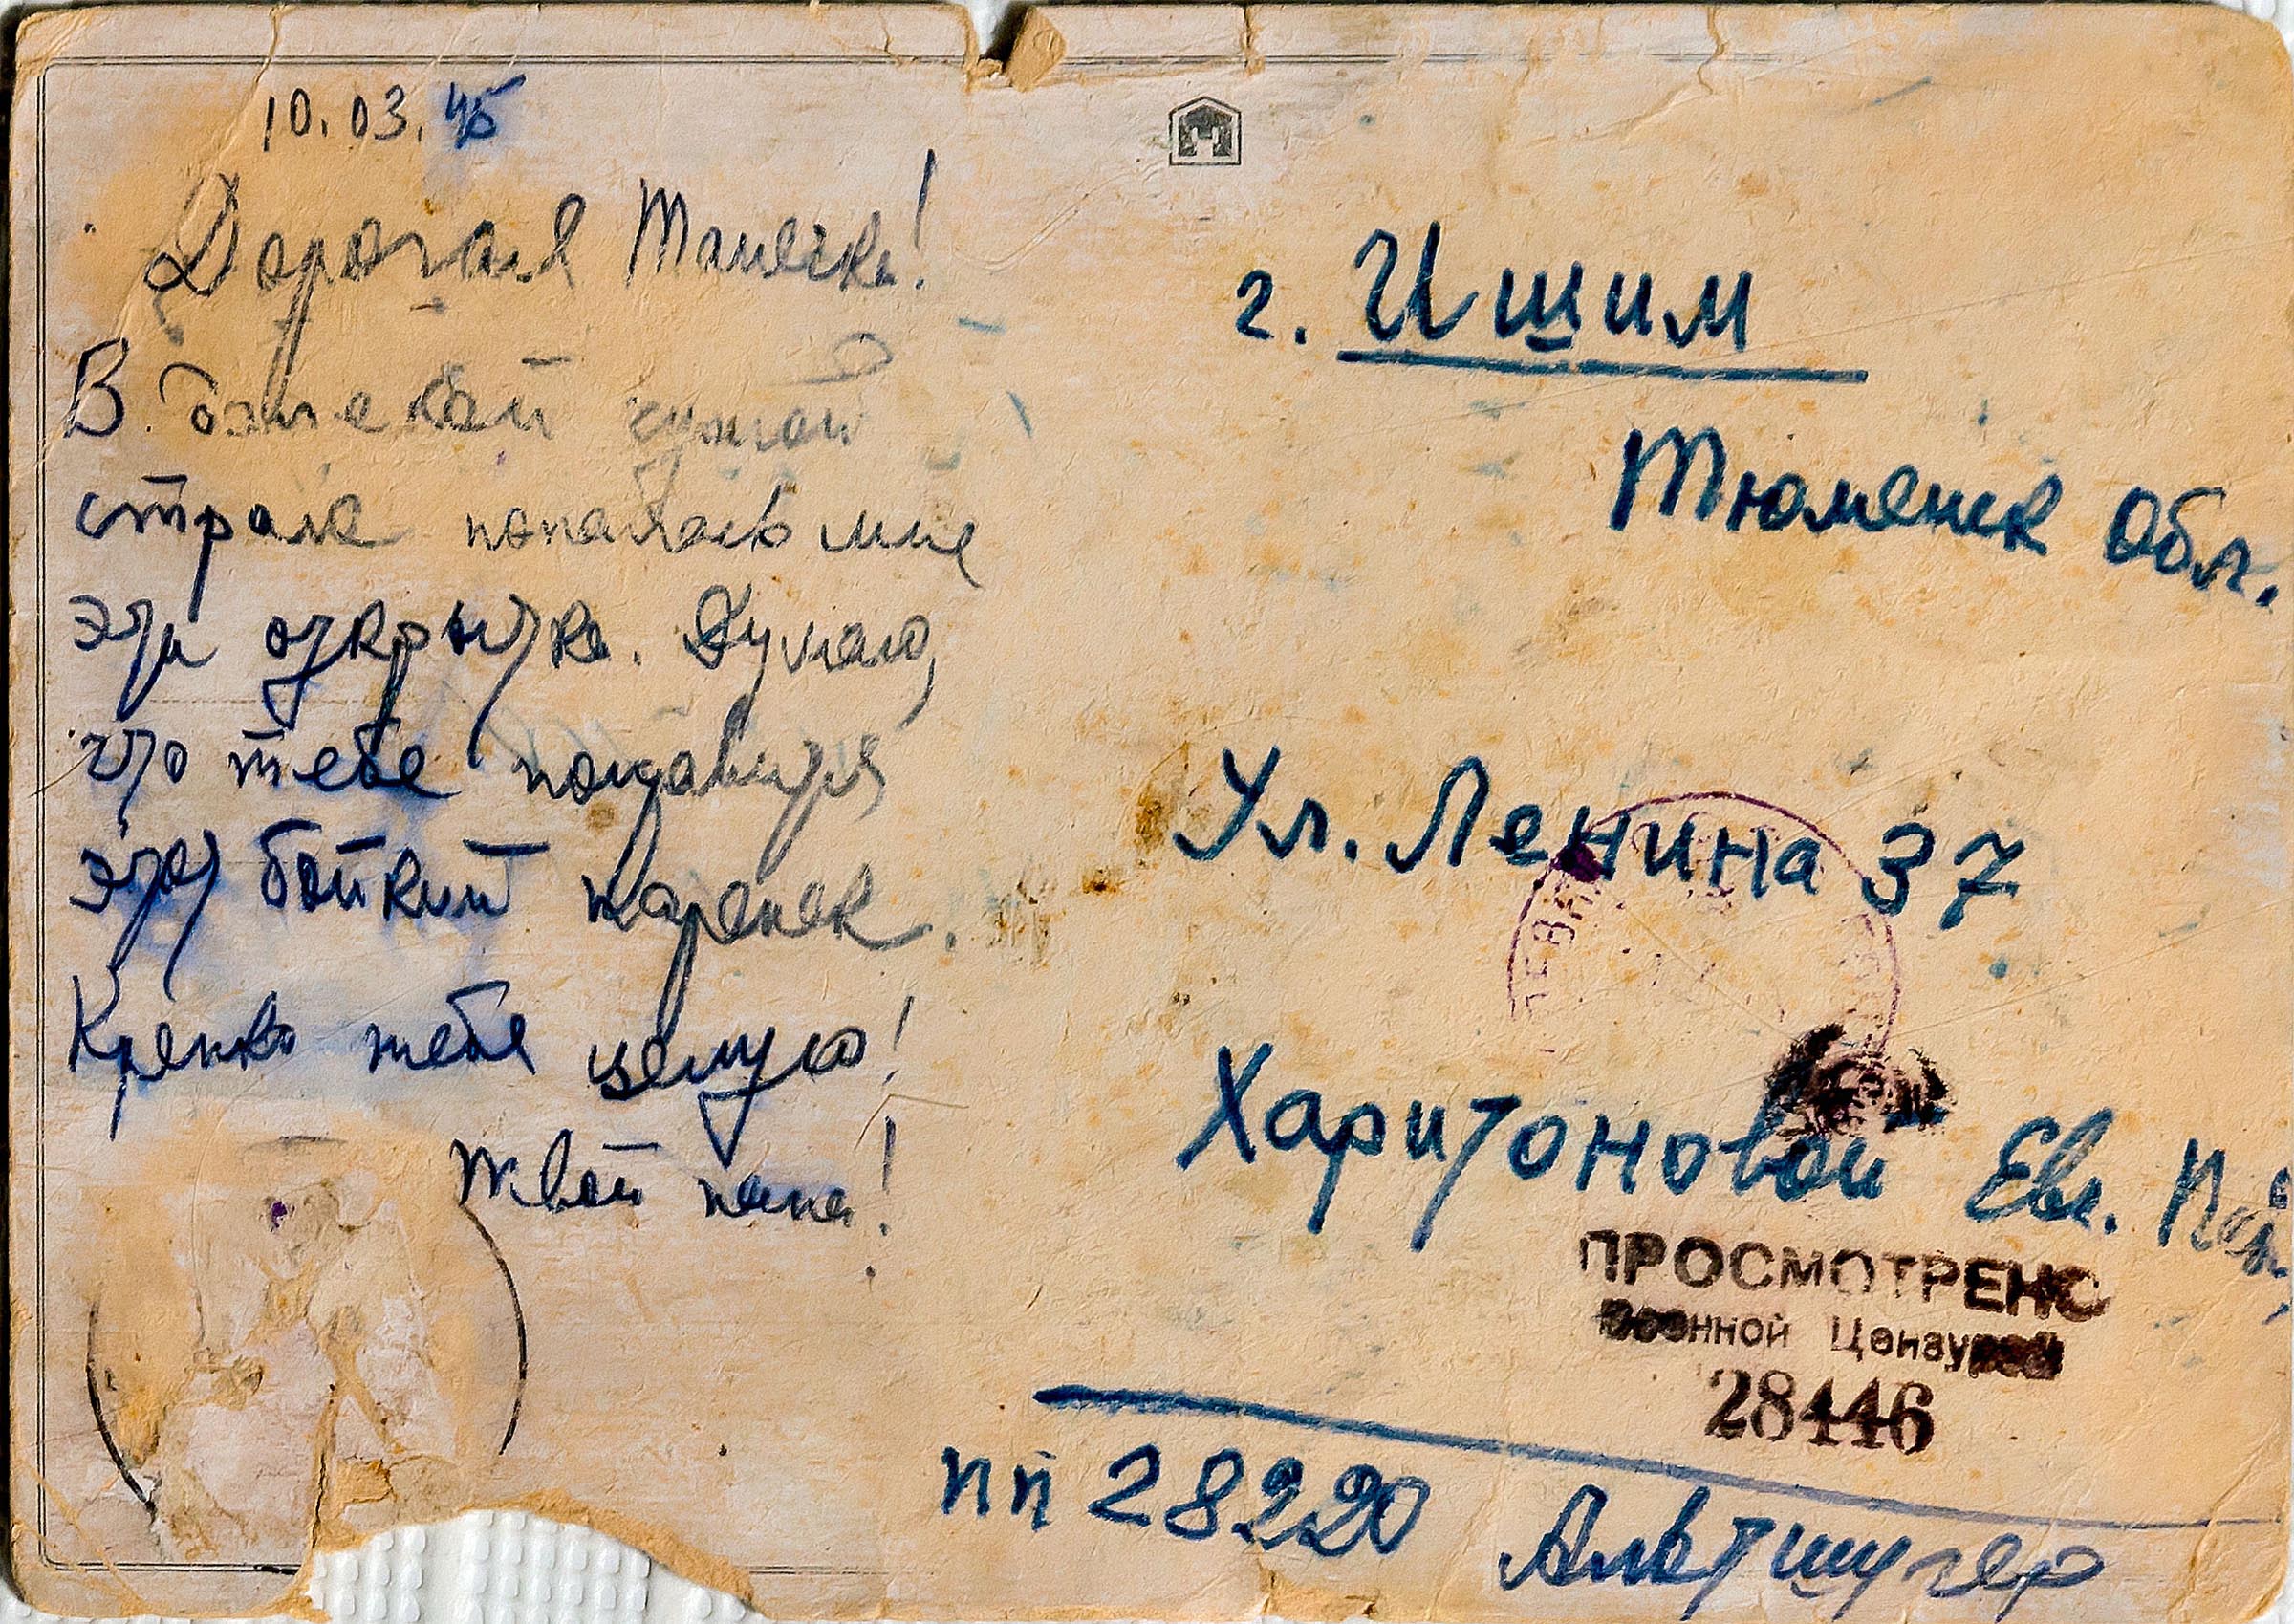 10.03.45
Дорогая Танечка!
В далекой чужой
стране попалась мне
эта открытка. Думаю,
что тебе понравится
этот бойкий паренек.
Крепко тебя целую!
Твой папа!
г. Ишим
Тюменск обл.
Ул. Ленина 37
Харитоновой Евг.
ПРОСМОТРЕНО
Военной Цензурой
28446
пп 28220 Альтшулер